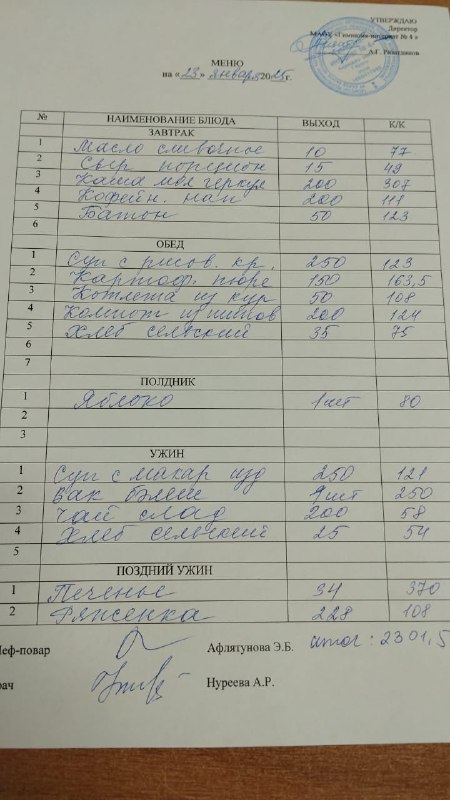 УТВЕРЖДАЮ
Директор
МАОУ «Гимназия-интернат № 4»
А.Г.
МЕНЮ
на «23» января 2025г.
№ НАИМЕНОВАНИЕ БЛЮДА ВЫХОД К/К
ЗАВТРАК
1 Масло сливочное 10 77
2 Сыр порцион 15 49
3 Каша мол геркул 200 307
4 Кофейн. нап 200 111
5 Батон 50 123
6
ОБЕД
1 Суп с рисов. кр. 250 123
2 Картоф. пюре 150 163,5
3 Котлета из кур 50 108
4 Компот 200 124
5 Хлеб сельский 35 75
6
7
ПОЛДНИК
1 Яблоко 1 шт 80
2
3
УЖИН
1 Суп с макар изд 250 121
2 шт 250
3 Чай слад 200 58
4 Хлеб сельский 25 54
5
ПОЗДНИЙ УЖИН
1 Печенье 34 370
2 Ряженка 228 108
Шеф-повар Афлятунова Э.Б. итог: 2301,5
рач Нуреева А.Р.